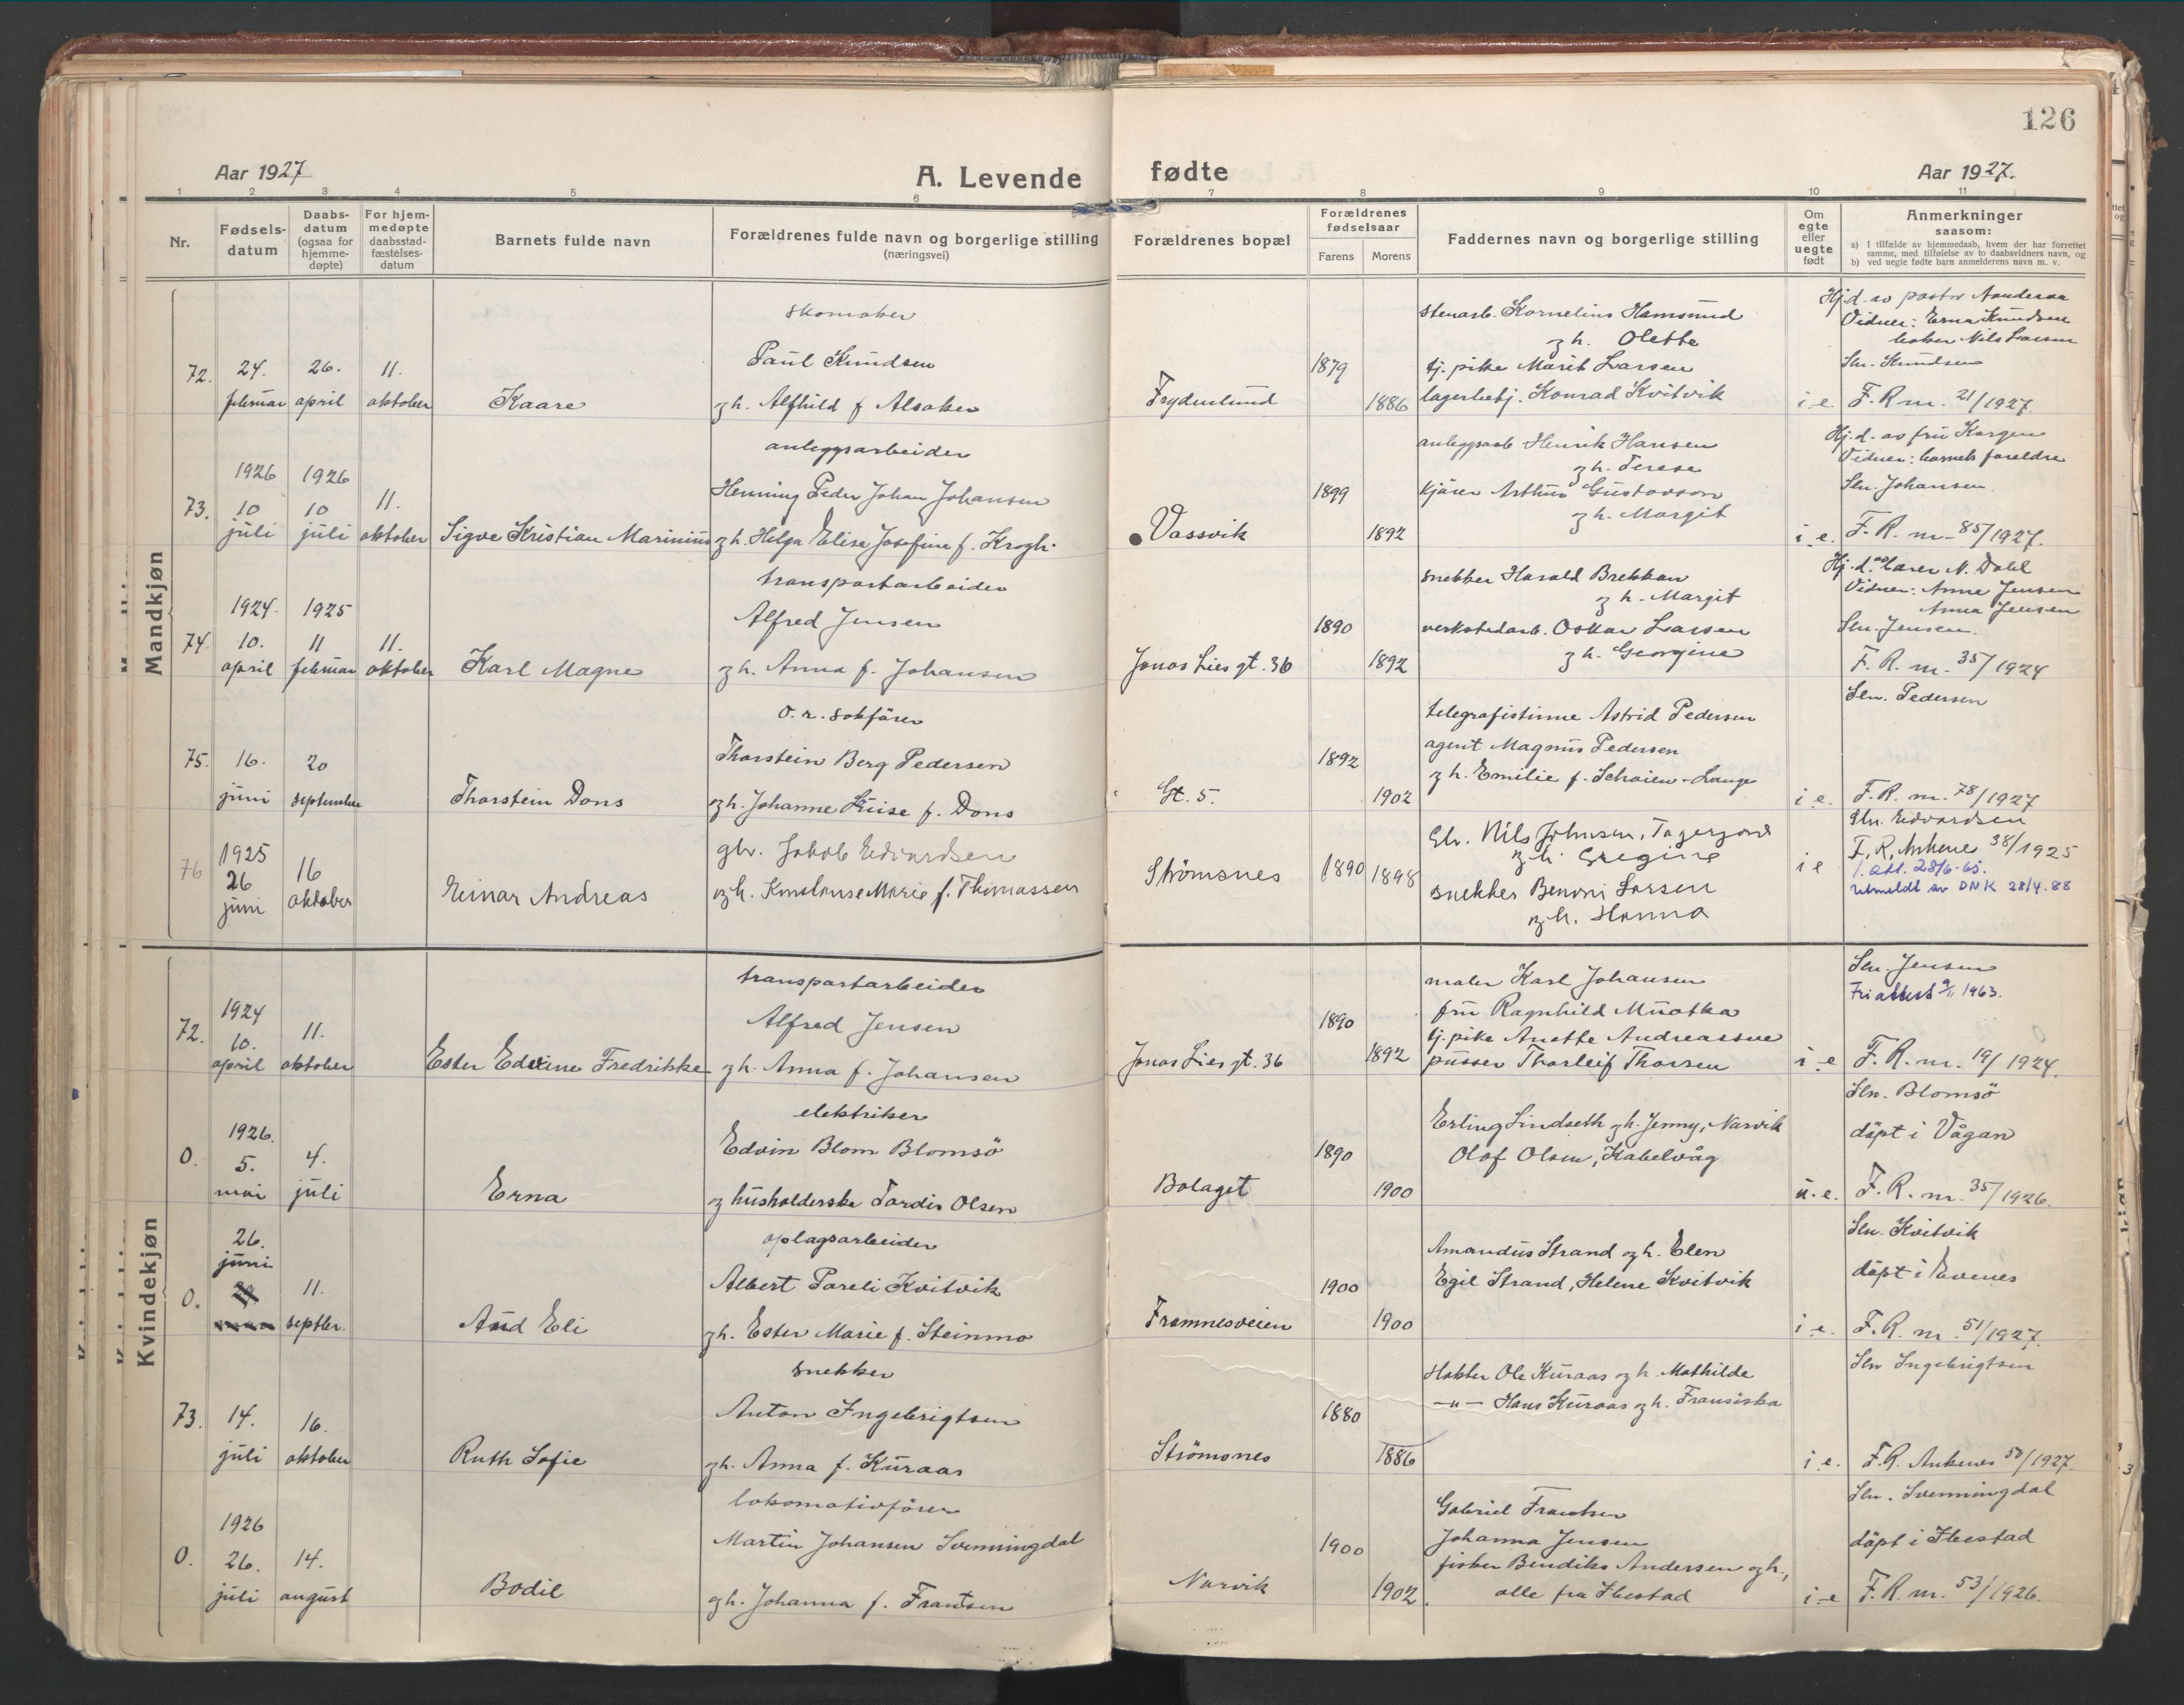 126
Aar 1927
A. Levende
fødte
Aar 1927.
1 2 3 4 5 6 7 8 9 10 11
Nr.
Fødsels-
datum
Daabs-
datum
(ogsaa for
hjemme-
døpte)
For hjem-
medøpte
daabsstad-
fæstelses-
datum
Barnets fulde navn
Forældrenes fulde navn og borgerlige stilling
(næringsvei)
Forældrenes bopæl
Forældrenes
fødselsaar
Farens Morens
Faddernes navn og borgerlige stilling
Om
egte
eller
uegte
født
Anmerkninger
saasom:
a) I tilfælde av hjemmedaab, hvem der har forrettet
samme, med tilføielse av to daabsvidners navn, og
b) ved uegte fødte barn anmelderens navn m. v.
Mandkjøn
72.
24.
februar
26.
april
11.
oktober
Kaare
skomaker
Paul Knudsen
og h. Alfhild f. Alsaker
Frydenlund
1879
1886
stenarb. Kornelius Hamsund
og h. Olette
tj. pike Marit Larsen
lagerbetj. Konrad Kvitvik
i e.
Hj.d. av pastor Aandersaa
Vidner: Erna Knudsen
baker Nils Larsen
Sln. Knudsen
F. R. nr. 21/1927.
73.
1926
10
juli
1926
10
juli
11.
oktober
Sigve Kristian Marinius
anleggsarbeider
Henning Peder Johan Johansen
og h. Helga Elise Josefine f. Krogh.
Vassvik
1899
1892
anleggsarb Henrik Hansen
og h. Terese
kjører Arthur Gustavson
og h. Margit
i. e.
Hj. d. av fru Korgen
Vidner: barnets foreldre
Sln. Johansen.
F. R. nr. 85/1927.
74.
1924.
10.
april
1925
11
februar
11.
oktober
Karl Magne
transportarbeider
Alfred Jensen
og h. Anna f. Johansen
Jonas Lies gt. 36
1890
1892
snekker Harald Brekkan
og h. Margit
verkstedarb. Oskar Larsen
og h. Georgine
Hj. d. av lærer N. Dahl
Vidner: Anne Jensen
Anna Jensen
Sln. Jensen.
F. R. nr. 35/1924
75.
16.
juni
20
september
Thorstein Dons
o. r. sakfører
Thorstein Berg Pedersen
og h. Johanne Luise f. Dons
Gt. 5.
1892
1902
telegrafistinne Astrid Pedersen
agent Magnus Pedersen
og h. Emilie f. Schøien-Lange
i e.
Sln. Pedersen
F. R. nr. 78/1927
76
1925
26
juni
16
oktober
Einar Andreas
gbr. Jakob Edvardsen
og h. Konstanse Marie f. Thomassen
Strømsnes
1890
1898
Gbr. Nils Johnsen,
og h. Gregine
snekker Benoni Larsen
og h. Hanna
i e
Sln. Edvardsen
F. R. Ankenes 38/1925
1. att. 28/6-65.
utmeldt av DNK 28/4.88
Kvindekjøn
72.
1924
10.
april
11.
oktober
Ester Edvine Fredrikke
transportarbeider
Alfred Jensen
og h. Anna f. Johansen
Jonas Lies gt. 36
1890
1892
maler Karl Johansen
fru Ragnhild Muotka
tj. pike Anette Andreassen
pusser Thorleif Thorsen
i e
Sln. Jensen
Friattest 9/11 1963.
F. R. nr. 19/1924.
0.
1926.
5.
mai
4.
juli
Erna
elektriker
Edvin Blom Blomsø
og husholderske Tordis Olsen
Bolaget
1890
1900
Erling Lindseth og h. Jenny, Narvik
Olaf Olsen, Kabelvåg
u. e.
Sln. Blomsø
døpt i Vågan
F. R. nr. 35/1926.
0.
26.
juni
11.
septbr.
Aud Eli
oplagsarbeider
Albert Pareli Kvitvik
og h. Ester Marie f. Steinmo
Framnesveien
1900
1900
Amandus Strand og h. Elen
Egil Strand, Helene Kvitvik
i e.
Sln. Kvitvik
døpt i Evenes
F. R. nr. 51/1927.
73.
14.
juli
16.
oktober
Ruth Sofie
snekker
Anton Ingebrigtsen
og h. Anna f. Kuraas
Strømsnes
1880
1886
Hakker Ole Kuraas og h. Mathilde
-"- Hans Kuraas og h. Fransiska
i e.
Sln Ingebrigtsen
F. R. Ankenes 50/1927.
0.
1926
26.
juli
14.
august
Bodil
lokomotivfører
Martin Johansen Svenningdal
og h. Johanna f. Frantsen
Narvik
1900
1902.
Gabriel Frantsen
Johanna Jensen
fisker Bendiks Andersen og h.,
alle fra Ibestad
i e
Sln. Svenningdal
døpt i Ibestad
F. R. nr. 53/1926.